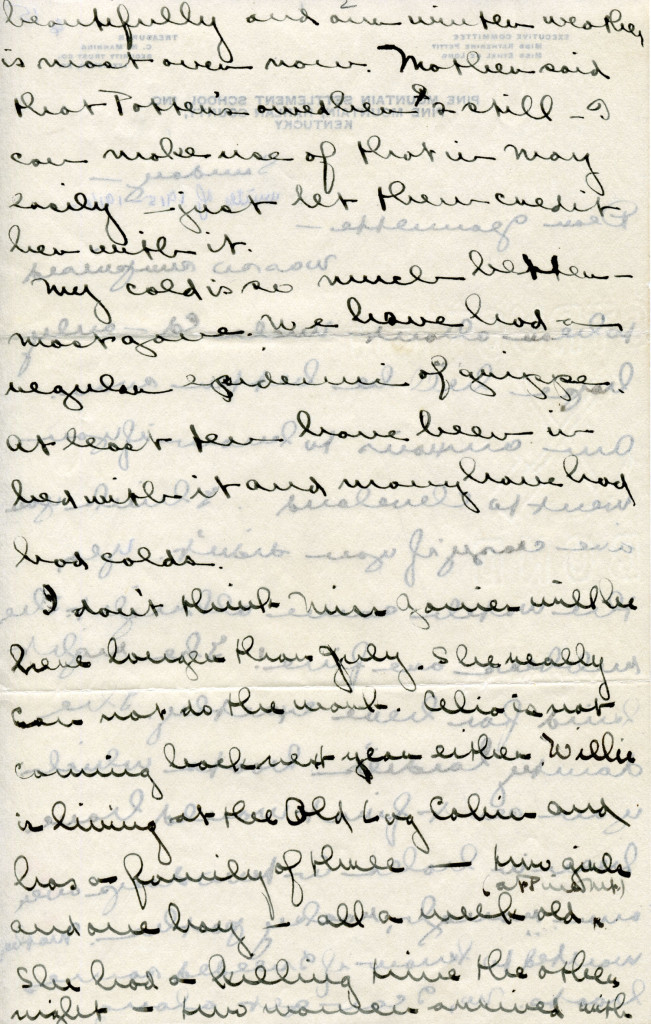 2
beautifully and our winter weather
is most over now. Mother said
that Potter's owed her $2 still – I
can make use of that in May
easily – just let them credit
her with it.
My cold is so much better –
most gone. We have had a
regular epidemic of grippe.
At least ten have been in
bed with it and many have had
bad colds.
I don't think Miss Gaines will be
here longer than July. She really
can not do the work. Celia is not
coming back next year either. Willie
is living at the Old Log Cabin and
has a family of three – two girls
(at Pine Mt)
and one boy – all a week old.
She had a killing time the other
night – two women arrived with